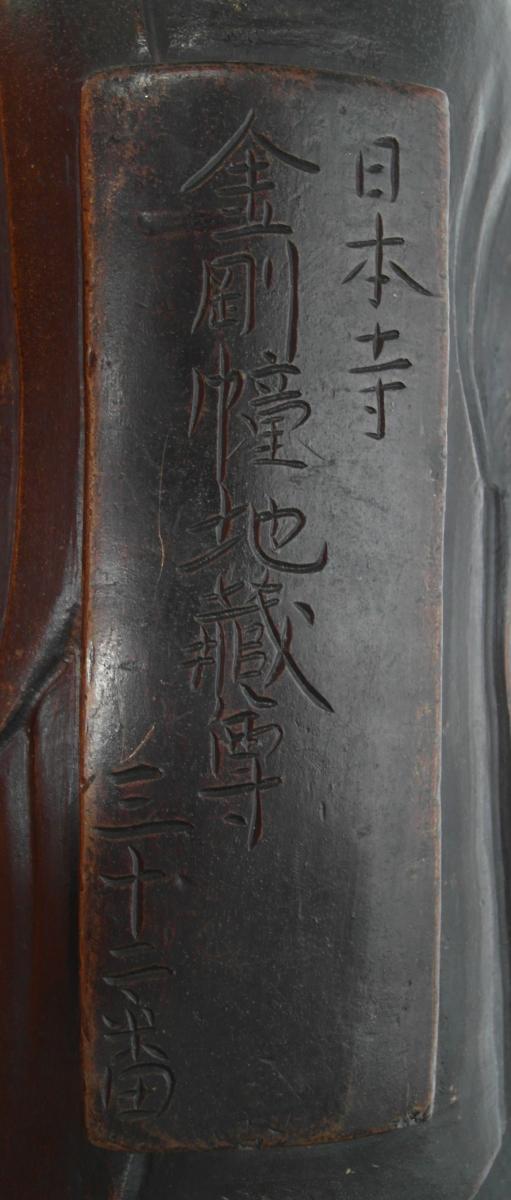 日本寺
金剛幢地蔵尊
三十二番